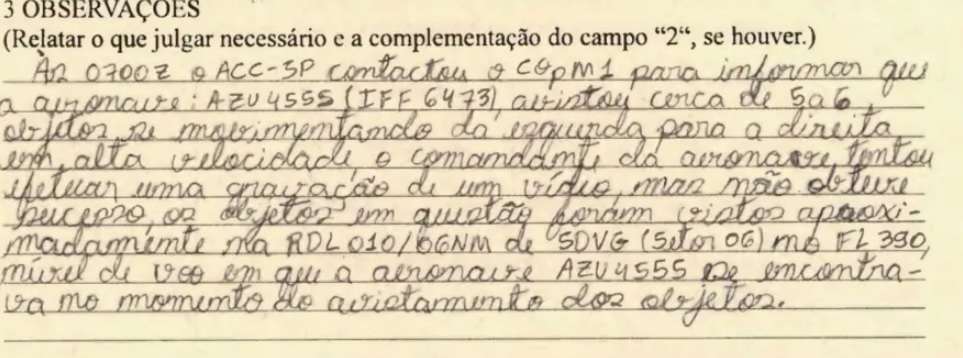 3 OBSERVAÇÕES
(Relatar o que julgar necessário e a complementação do campo “2“, se houver.)
Às 0700Z o ACC-SP contactou o COpM1 para informar que
a aeronave: AZU4555 (IFF 6473), avistou cerca de 5 a 6
objetos se movimentando da esquerda para a direita
em alta velocidade, o comandante da aeronave, tentou
efetuar uma gravação de um vídeo, mas não obteve
sucesso, os objetos em questão foram vistos aproxi-
madamente na RDL 010/06NM de SDVG (Setor 06) no FL 390,
nível de voo em que a aeronave AZU4555 se encontra-
va no momento do avistamento dos objetos.